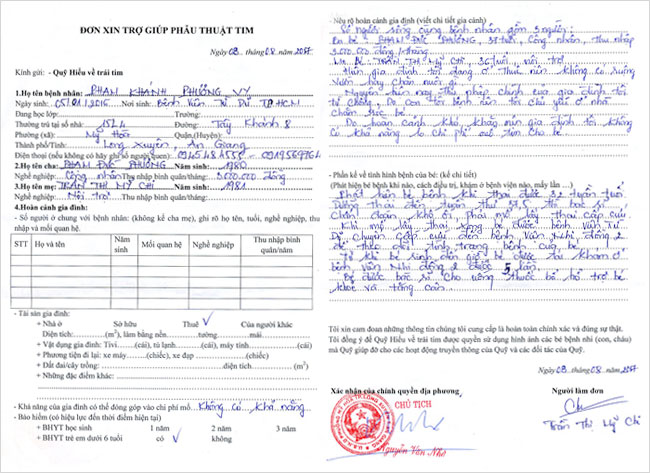 ĐƠN XIN TRỢ GIÚP PHẪU THUẬT TIM
Ngày 03 tháng 08 năm 2017
Kính gửi: - Quỹ Hiểu về trái tim
1.Họ tên bệnh nhân: PHAN KHÁNH PHƯƠNG VY
Ngày sinh: 05/01/2016 Nơi sinh: Bệnh Viện Từ Dũ TP.HCM
Đang học lớp: Trường:
Thường trú tại số nhà: 15L4 Đường: Tây Khánh 8
Phường (xã): Mỹ Hòa Quận (Huyện):
Thành phố/Tỉnh: Long Xuyên, An Giang
Điện thoại (nếu không có hãy ghi số người quen):
2.Họ tên cha: PHAN ĐỨC PHƯƠNG Năm sinh: 1980
Nghề nghiệp: Công nhân Thu nhập bình quân/tháng: 3.000.000 đồng
3.Họ tên mẹ: TRẦN THỊ MỸ CHI Năm sinh: 1981
Nghề nghiệp: Nội trợ Thu nhập bình quân/tháng:
4.Hoàn cảnh gia đình:
- Số người ở chung với bệnh nhân: (không kể cha mẹ), ghi rõ họ tên, tuổi, nghề nghiệp, thu
nhập và mối quan hệ.
STT Họ và tên Năm sinh Mối quan hệ Nghề nghiệp Thu nhập bình quân/năm
- Tài sản gia đình:
+ Nhà ở Sở hữu Thuê ✓ Của người khác
Diện tích: (m²), làm bằng nền tường mái
+ Vật dụng gia đình: Tivi (cái), tủ lạnh (cái), máy tính (cái)
+ Phương tiện đi lại: xe máy (chiếc), xe đạp (chiếc)
+ Đất đai/cây trồng: diện tích (m²)
+ Những đặc điểm khác:
- Khả năng của gia đình có thể đóng góp vào chi phí mổ: Không có khả năng
- Bảo hiểm (có hiệu lực đến thời điểm hiện tại)
+ BHYT học sinh 1 năm 2 năm 3 năm
+ BHYT trẻ em dưới 6 tuổi có ✓ không
- Nêu rõ hoàn cảnh gia đình (viết chi tiết gia cảnh)
Số người sống cùng bệnh nhân gồm 3 người:
Ba bé: PHAN ĐỨC PHƯƠNG, 37 tuổi, Công nhân, thu nhập
3.000.000 đồng/tháng
Mẹ Bé: TRẦN THỊ MỸ CHI, 36 tuổi, nội trợ
Hiện gia đình tôi đang ở thuê nên không có ruộng
Vườn hay chăn nuôi gì.
Nguyên nhân nay thu nhập chính của gia đình tôi
từ Chồng. Do con tôi bệnh nên tôi chủ yếu ở nhà
chăm sóc bé.
Do hoàn cảnh khó khăn nên gia đình tôi không
có khả năng lo chi phí cho bé.
- Phần kể về tình hình bệnh của bé: (kể chi tiết)
(Phát hiện bé bệnh khi nào, cách điều trị, khám ở bệnh viện nào, mấy lần …)
Phát hiện bé bệnh khi thai được 32 tuần tuổi
Dưỡng thai đến tuần thứ 37,5 thì bác sĩ
chẩn đoán phải mổ lấy thai cấp cứu
Khi mổ lấy thai xong bé được bệnh viện Từ
Dũ chuyển cấp cứu đến bệnh viện Nhi đồng 2
để theo dõi tình trạng bệnh của bé.
Từ khi bé sinh đến giờ bé được tái khám ở
bệnh viện Nhi đồng 2 được 5 lần.
Bé được bác sĩ cho uống thuốc bổ hỗ trợ bé
khỏe và tăng cân.
Tôi xin cam đoan những thông tin chúng tôi cung cấp là hoàn toàn chính xác và đúng sự thật.
Tôi đồng ý để Quỹ Hiểu về trái tim được quyền sử dụng hình ảnh các bé bệnh nhi (con, cháu)
mà Quỹ giúp đỡ cho các hoạt động truyền thông của Quỹ và các đối tác của Quỹ.
Ngày 03 tháng 08 năm 2017
Xác nhận của chính quyền địa phương,
Người làm đơn
CHỦ TỊCH
Nguyễn Văn Nhỏ
Trần Thị Mỹ Chi